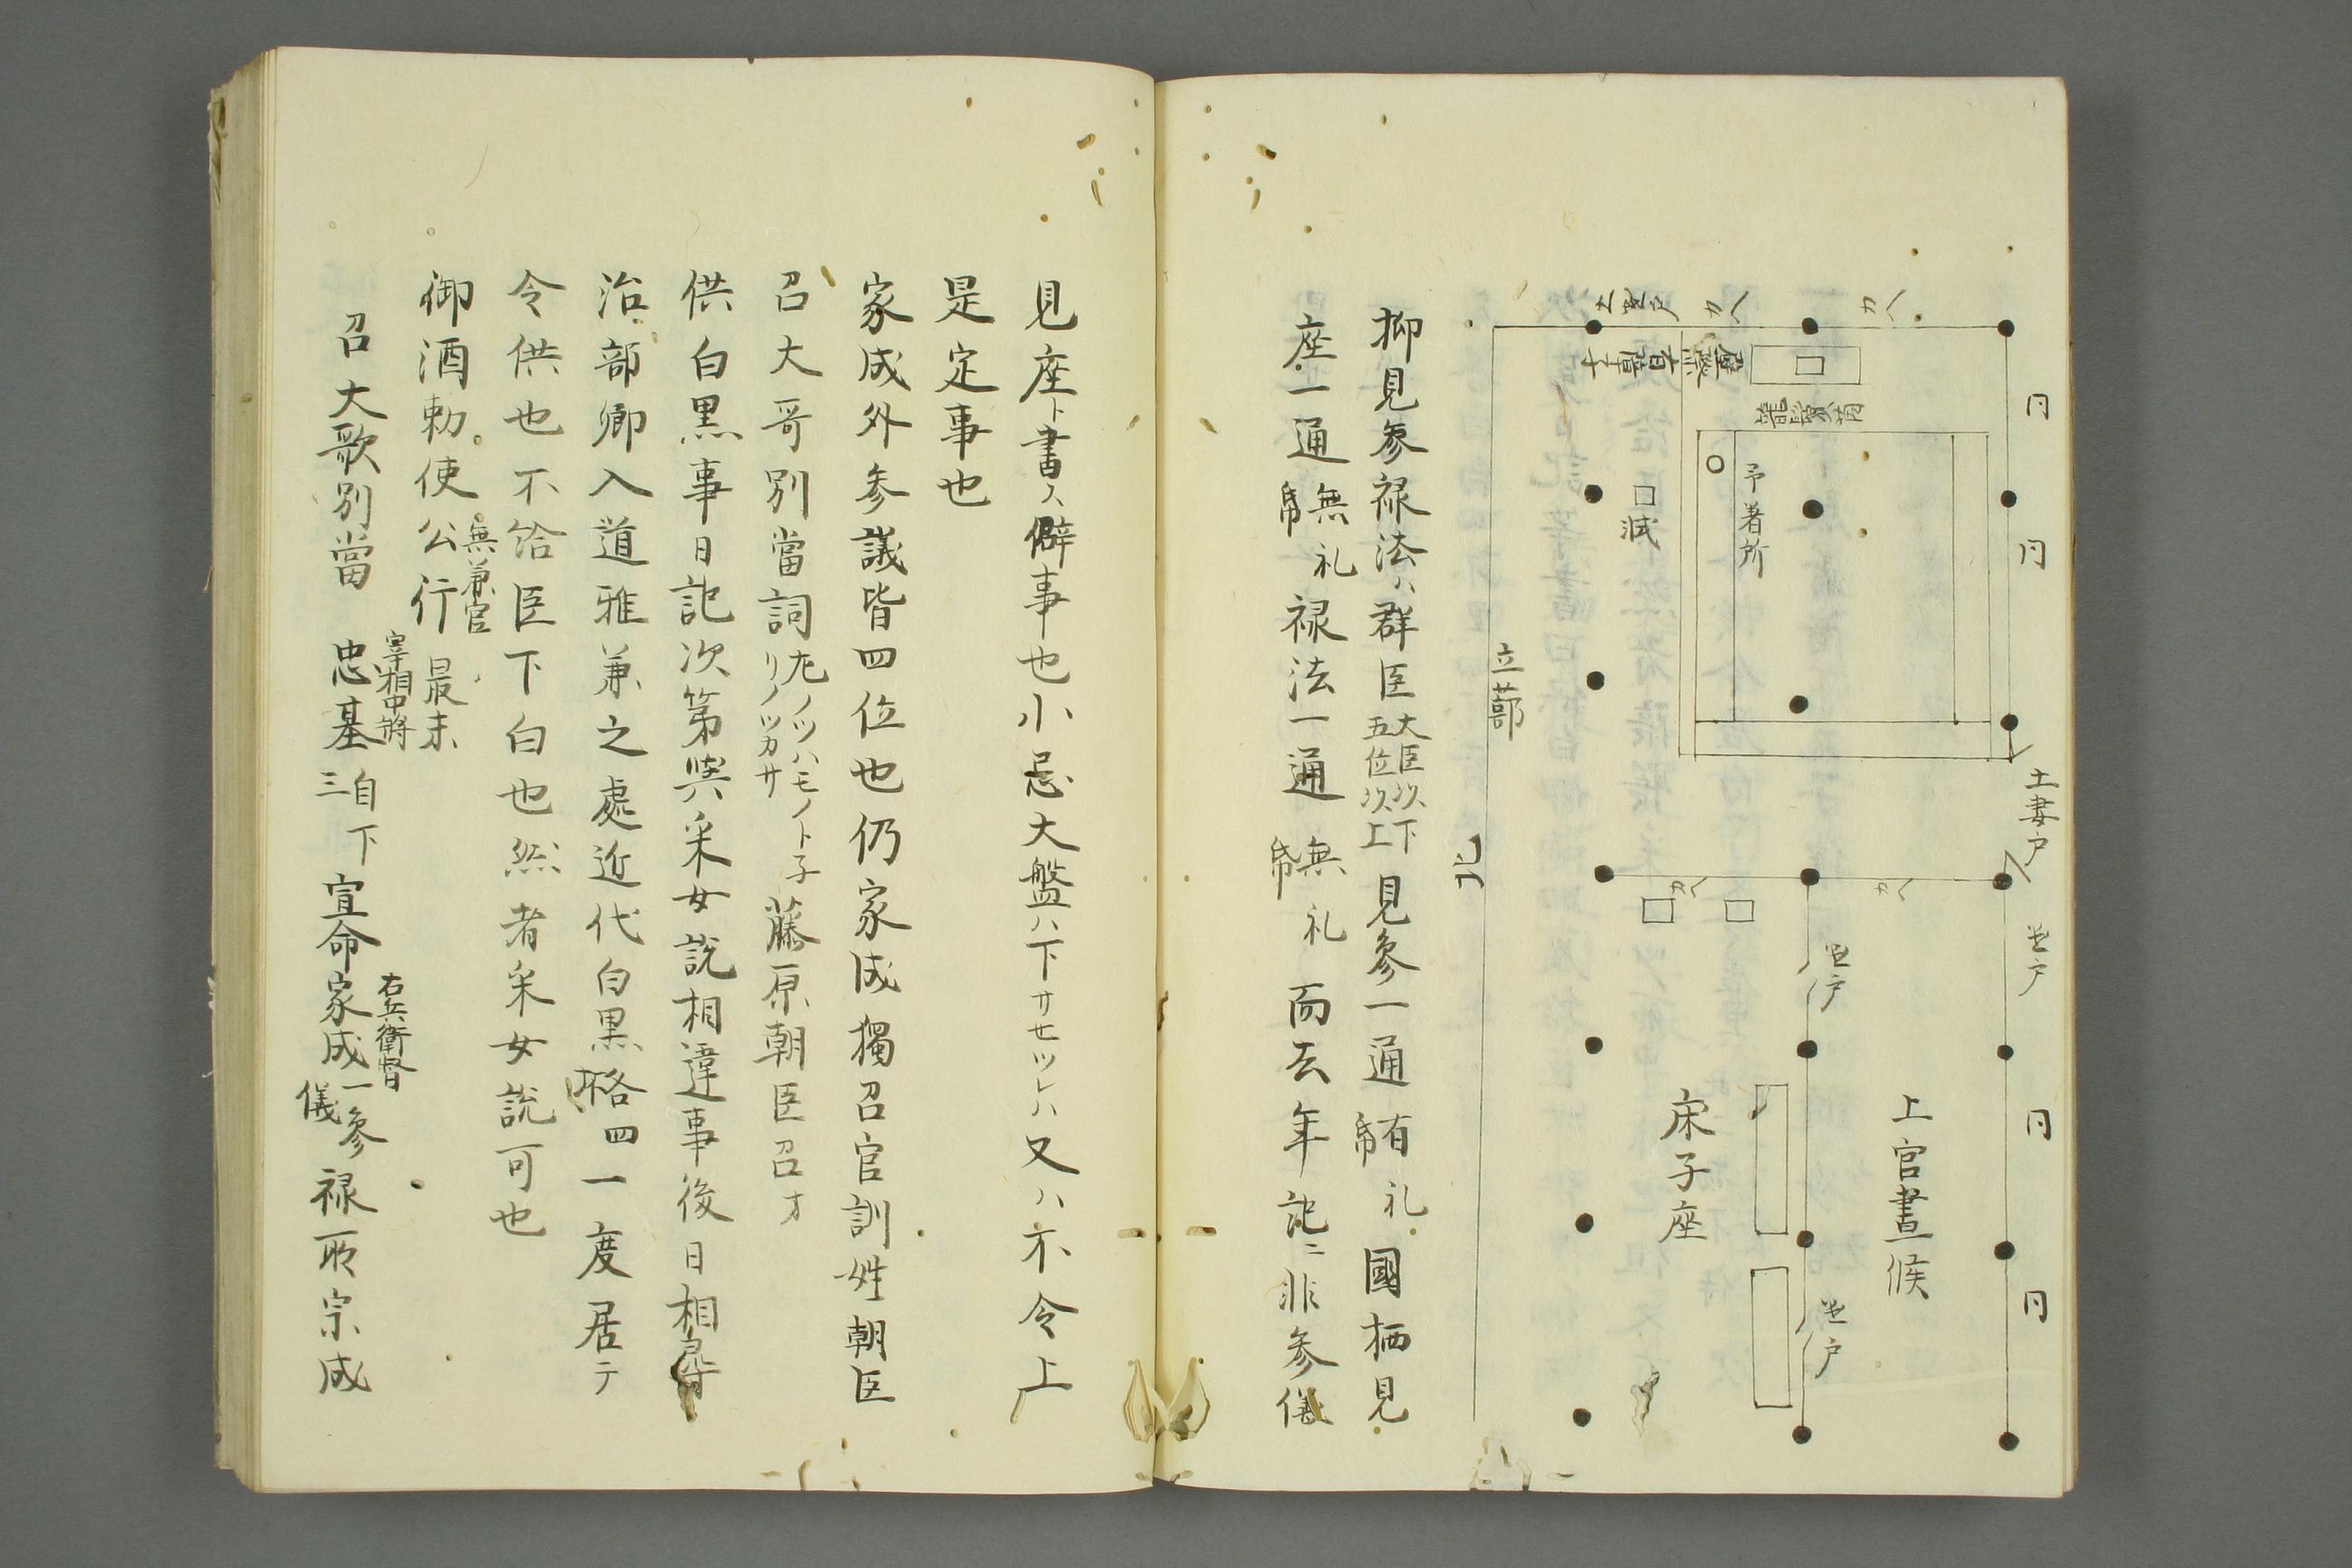 円
円
土妻戸
妻戸
円
円
カヘ
上官晝候
カヘ
土妻戸
カヘ
予著所
妻戸
妻戸
カヘ
床子座
立蔀
北
抑見参禄法ハ群臣大臣以下五位以上見参一通有礼帋國栖見
座一通無礼帋禄法一通無礼帋而去年記ニ非参儀
見座ト書ス僻事也小忌大盤ハ下サセツレハ又ハ不令上
是定事也
家成外参議皆四位也仍家成獨召官訓姓朝臣
召大哥別當詞尢ノツハモノトリノツカサ藤原朝臣召才
供白黒事日記次第與采女説相違事後日相尋
治部卿入道雅兼之處近代白黒格四一度居テ
令供也不給臣下白也然者采女説可也
御酒勅使公行無兼官最末
召大歌別當忠基宰相中将自下三宣命家成右兵衛督一参儀禄所宗成